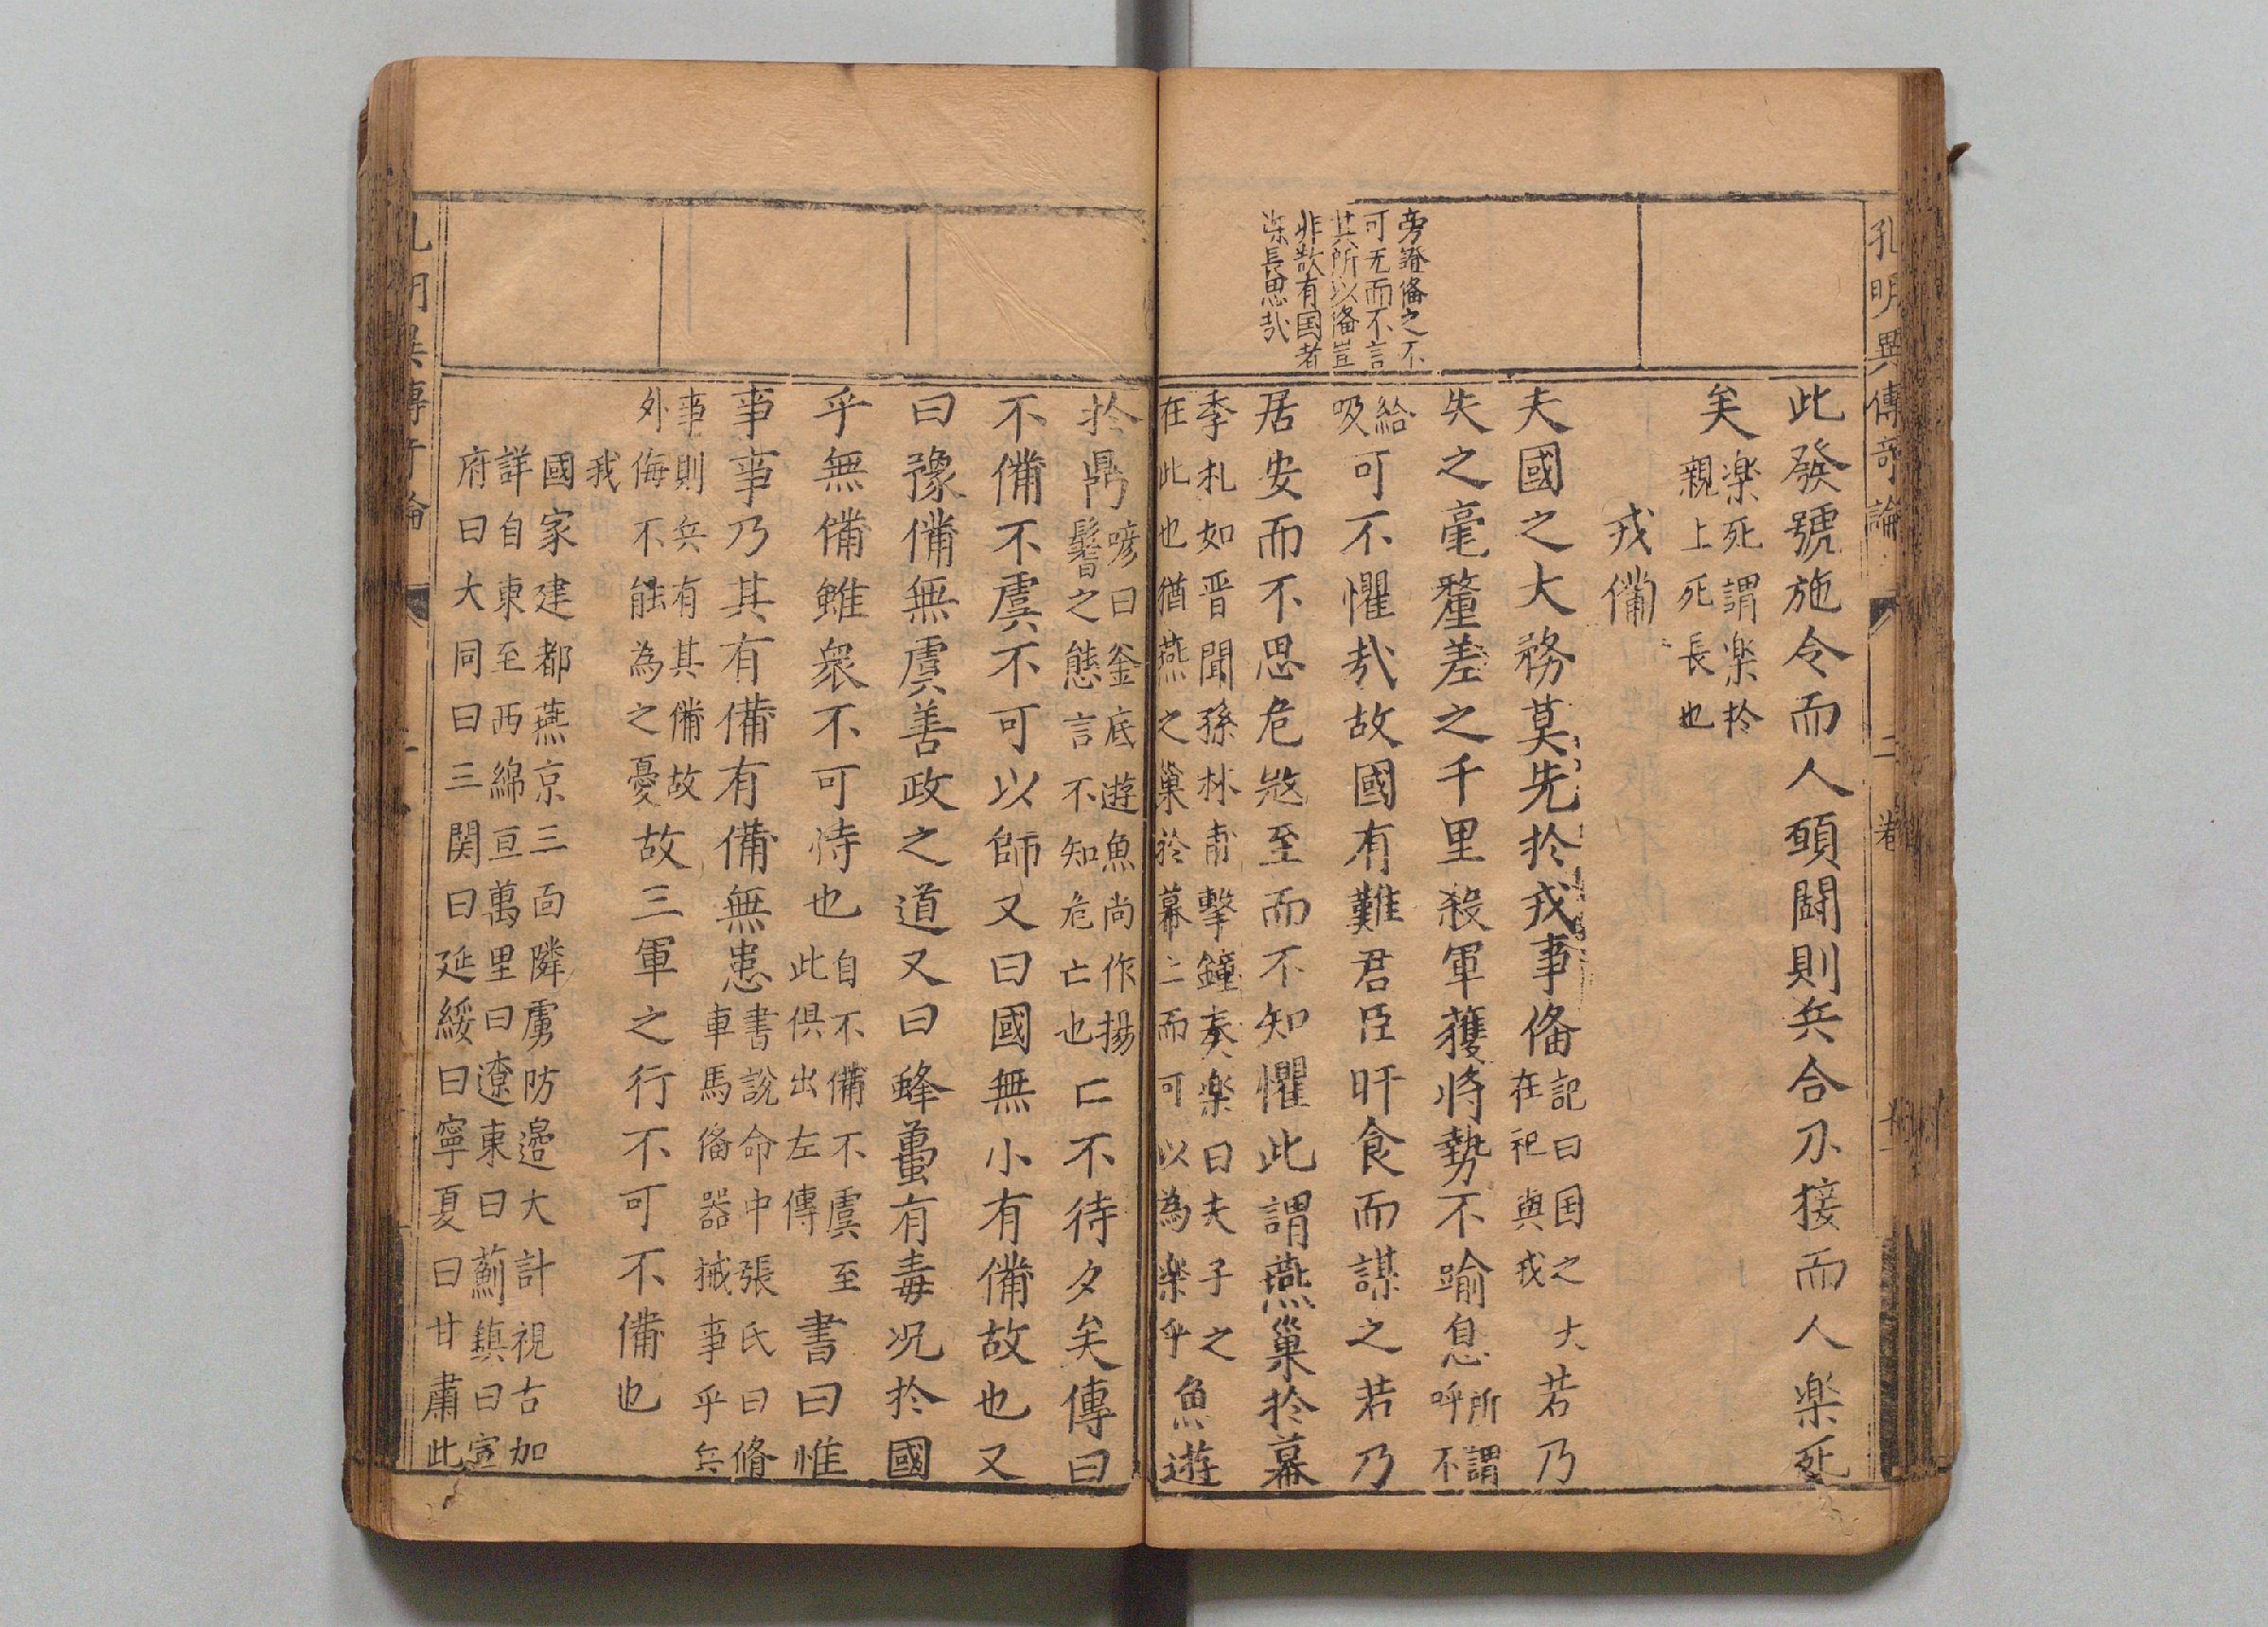 孔明異傳奇論
二卷
此發號施令而人願鬪則兵合刃接而人樂死
矣
楽死謂楽扵
親上死長也
戎備
夫國之大務莫先扵戎事俻
記曰国之大
在祀與戎
若乃
失之毫釐差之千里殺軍獲將勢不踰息
所謂
呼不
給
吸
可不懼㢤故國有難君臣旰食而謀之若乃
旁證俻之不
可无而不言
其所以俻豈
非欲有国者
深長思㢤
居安而不思危冦至而不知懼此謂燕巢扵幕
季札如晋聞孫林甫擊鐘奏楽曰夫子之
在此也猶燕之巢於幕上而可以為楽乎
魚遊
扵鼎
諺曰釜底遊魚尚作揚
鬐之態言不知危亡也
亡不待夕矣傳曰
不備不虞不可以師又曰國無小有備故也又
曰豫備無虞善政之道又曰蜂蠆有毒况扵國
乎無備雖衆不可恃也
自不備不虞至
此俱出左傳
書曰惟
事事乃其有備有備無患
書說命中張氏曰脩
車馬俻器械事乎兵
事則兵有其備故
外侮不能為之憂
故三軍之行不可不備也
我
國家建都燕京三面隣虜防邉大計視古加
詳自東至西綿亘萬里曰遼東曰薊鎮曰宣
府曰大同曰三関曰延綏曰寧夏曰甘肅此